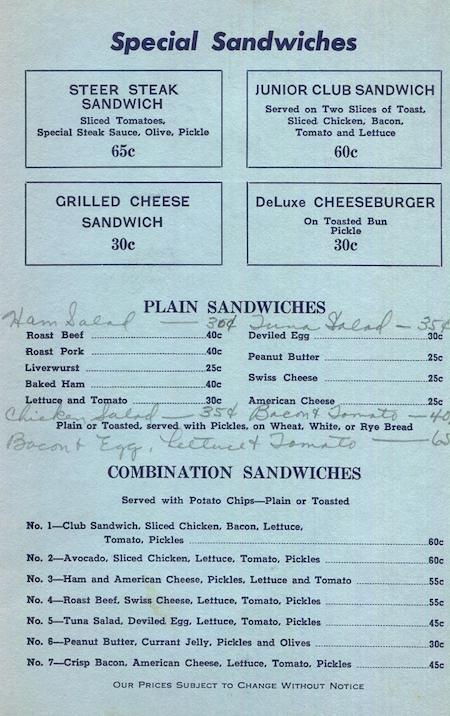 Special Sandwiches
STEER STEAK
SANDWICH
Sliced Tomatoes,
Special Steak Sauce, Olive, Pickle
65c
JUNIOR CLUB SANDWICH
Served on Two Slices of Toast,
Sliced Chicken, Bacon,
Tomato and Lettuce
60c
GRILLED CHEESE
SANDWICH
30c
DeLuxe CHEESEBURGER
On Toasted Bun
Pickle
30c
PLAIN SANDWICHES
Ham Salad — 30¢
Roast Beef 40c
Roast Pork 40c
Liverwurst 25c
Baked Ham 40c
Lettuce and Tomato 30c
Chicken Salad — 35¢
Tuna Salad — 35¢
Deviled Egg 30c
Peanut Butter 25c
Swiss Cheese 25c
American Cheese 25c
Bacon & Tomato — 40
Plain or Toasted, served with Pickles, on Wheat, White, or Rye Bread
Bacon & Egg, Lettuce & Tomato — 65
COMBINATION SANDWICHES
Served with Potato Chips—Plain or Toasted
No. 1—Club Sandwich, Sliced Chicken, Bacon, Lettuce,
Tomato, Pickles 60c
No. 2—Avocado, Sliced Chicken, Lettuce, Tomato, Pickles 60c
No. 3—Ham and American Cheese, Pickles, Lettuce and Tomato 55c
No. 4—Roast Beef, Swiss Cheese, Lettuce, Tomato, Pickles 55c
No. 5—Tuna Salad, Deviled Egg, Lettuce, Tomato, Pickles 45c
No. 6—Peanut Butter, Currant Jelly, Pickles and Olives 30c
No. 7—Crisp Bacon, American Cheese, Lettuce, Tomato, Pickles 45c
OUR PRICES SUBJECT TO CHANGE WITHOUT NOTICE